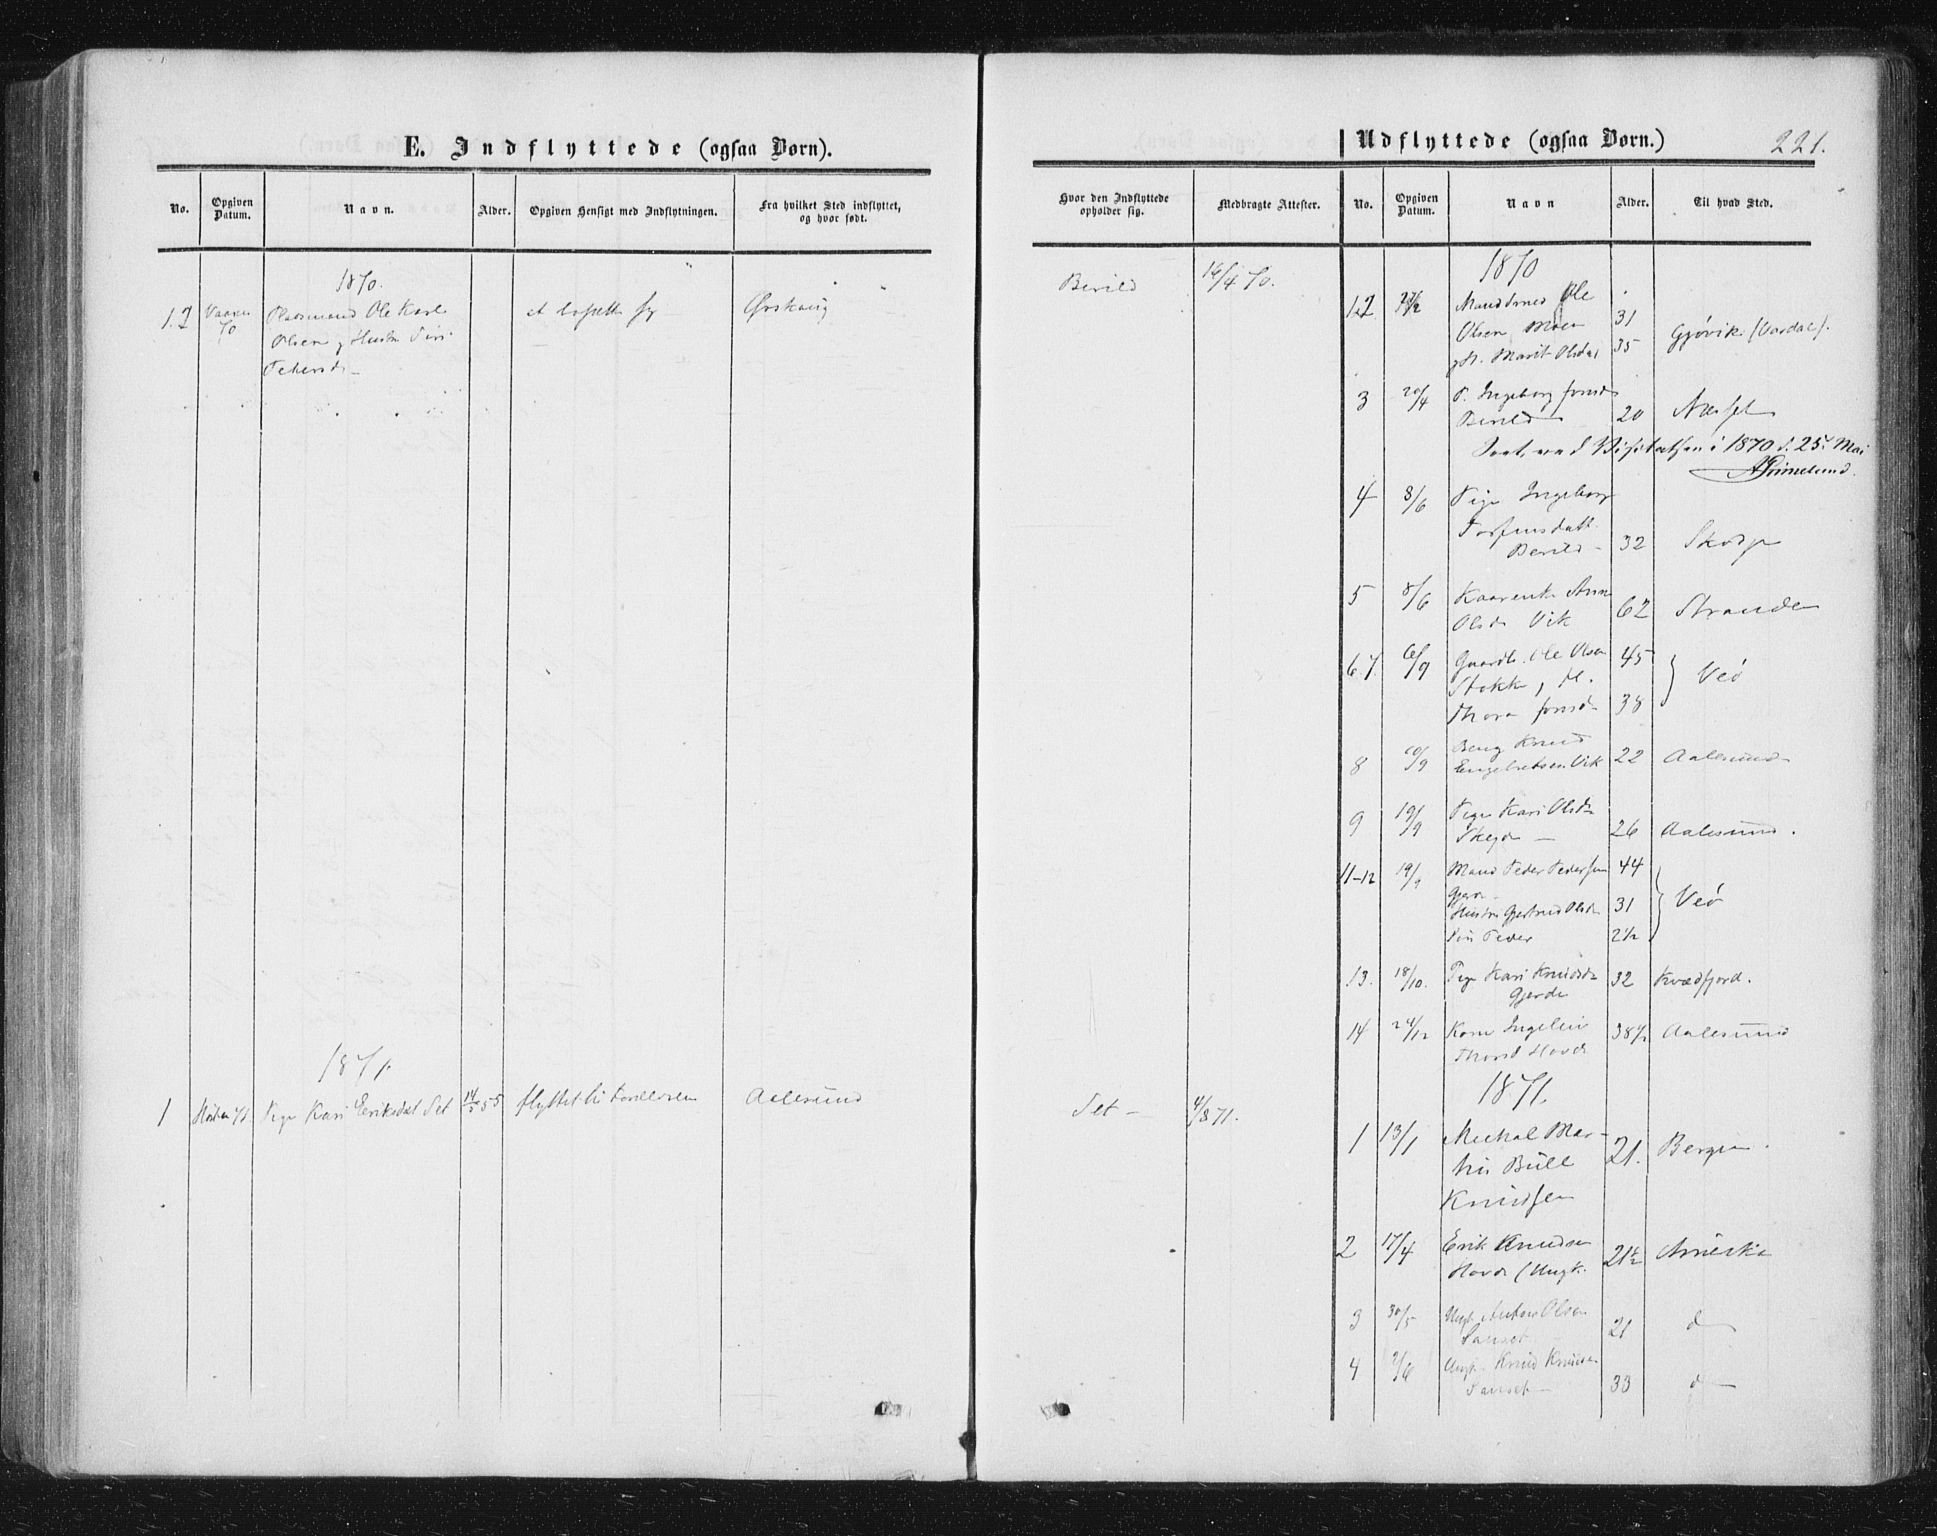 E. Indflyttede (ogsaa Børn).
No.
Opgiven Datum.
Navn.
Alder.
Opgiven Hensigt med Indflytningen.
Fra hvilket Sted indflyttet, og hvor født.
1870.
1.2 Vaaren 70 Pladsmand Ole Karl Ørskoug
Olsen g Hustr
1871.
1 Høsten 71 Pige Kari Eriksdat Set 14/5 55 flyttet til Forældrene Aalesund
Hvor den Indflyttede opholder sig.
Medbragte Attester.
Berild 16/4 70.
Set - 4/8 71.
Udflyttede (ogsaa Børn.)
221.
No.
Opgiven Datum.
Navn
Alder.
Til hvad Sted.
1870
1.2 Ole
Olsen Moen 31 Gjøvik (Vardal).
Marit Olsda 35
3 20/4 P. Ingeborg Jonsd
Berild 20 Næsset
Visitatsen i 1870 d. 25. Mai
4 8/6 Pige Ingeborg
Torfinsdatt.
Berild - 32 Skodje
5 8/6 Anne
Olsd. Vik 62 Stranden
6.7. 6/9 Gaardb. Ole Olsen 45
Stokke, H. Veø
Thora Jonsd- 38
8 20/9 Knud
Engebretsen Vik 22 Aalesund
9 19/9 Pige Kari Olsd
26 Aalesund.
11-12 19/9 Mand Peder Pedersen 44
Gjerde
Hustru Gjertrud Olsd 31 Veø
Søn Peder 2½
13. 18/10. Pige Kari Knudsd 32 Kvædfjord.
Gjerde
14 24/12 Kone Ingelein 38½ Aalesund
Thorsd Hovde
1871.
1 13/1 Mikal Mar-
tin Bull 21. Bergen.
Knudsen
2 17/4 Erik Knudsen
Hovde (Ungk. 21½ Amerika
3 30/5 Ungk. Anton Olsen
21 d
4 /6 Ungk. Knud Knudsen
33 d